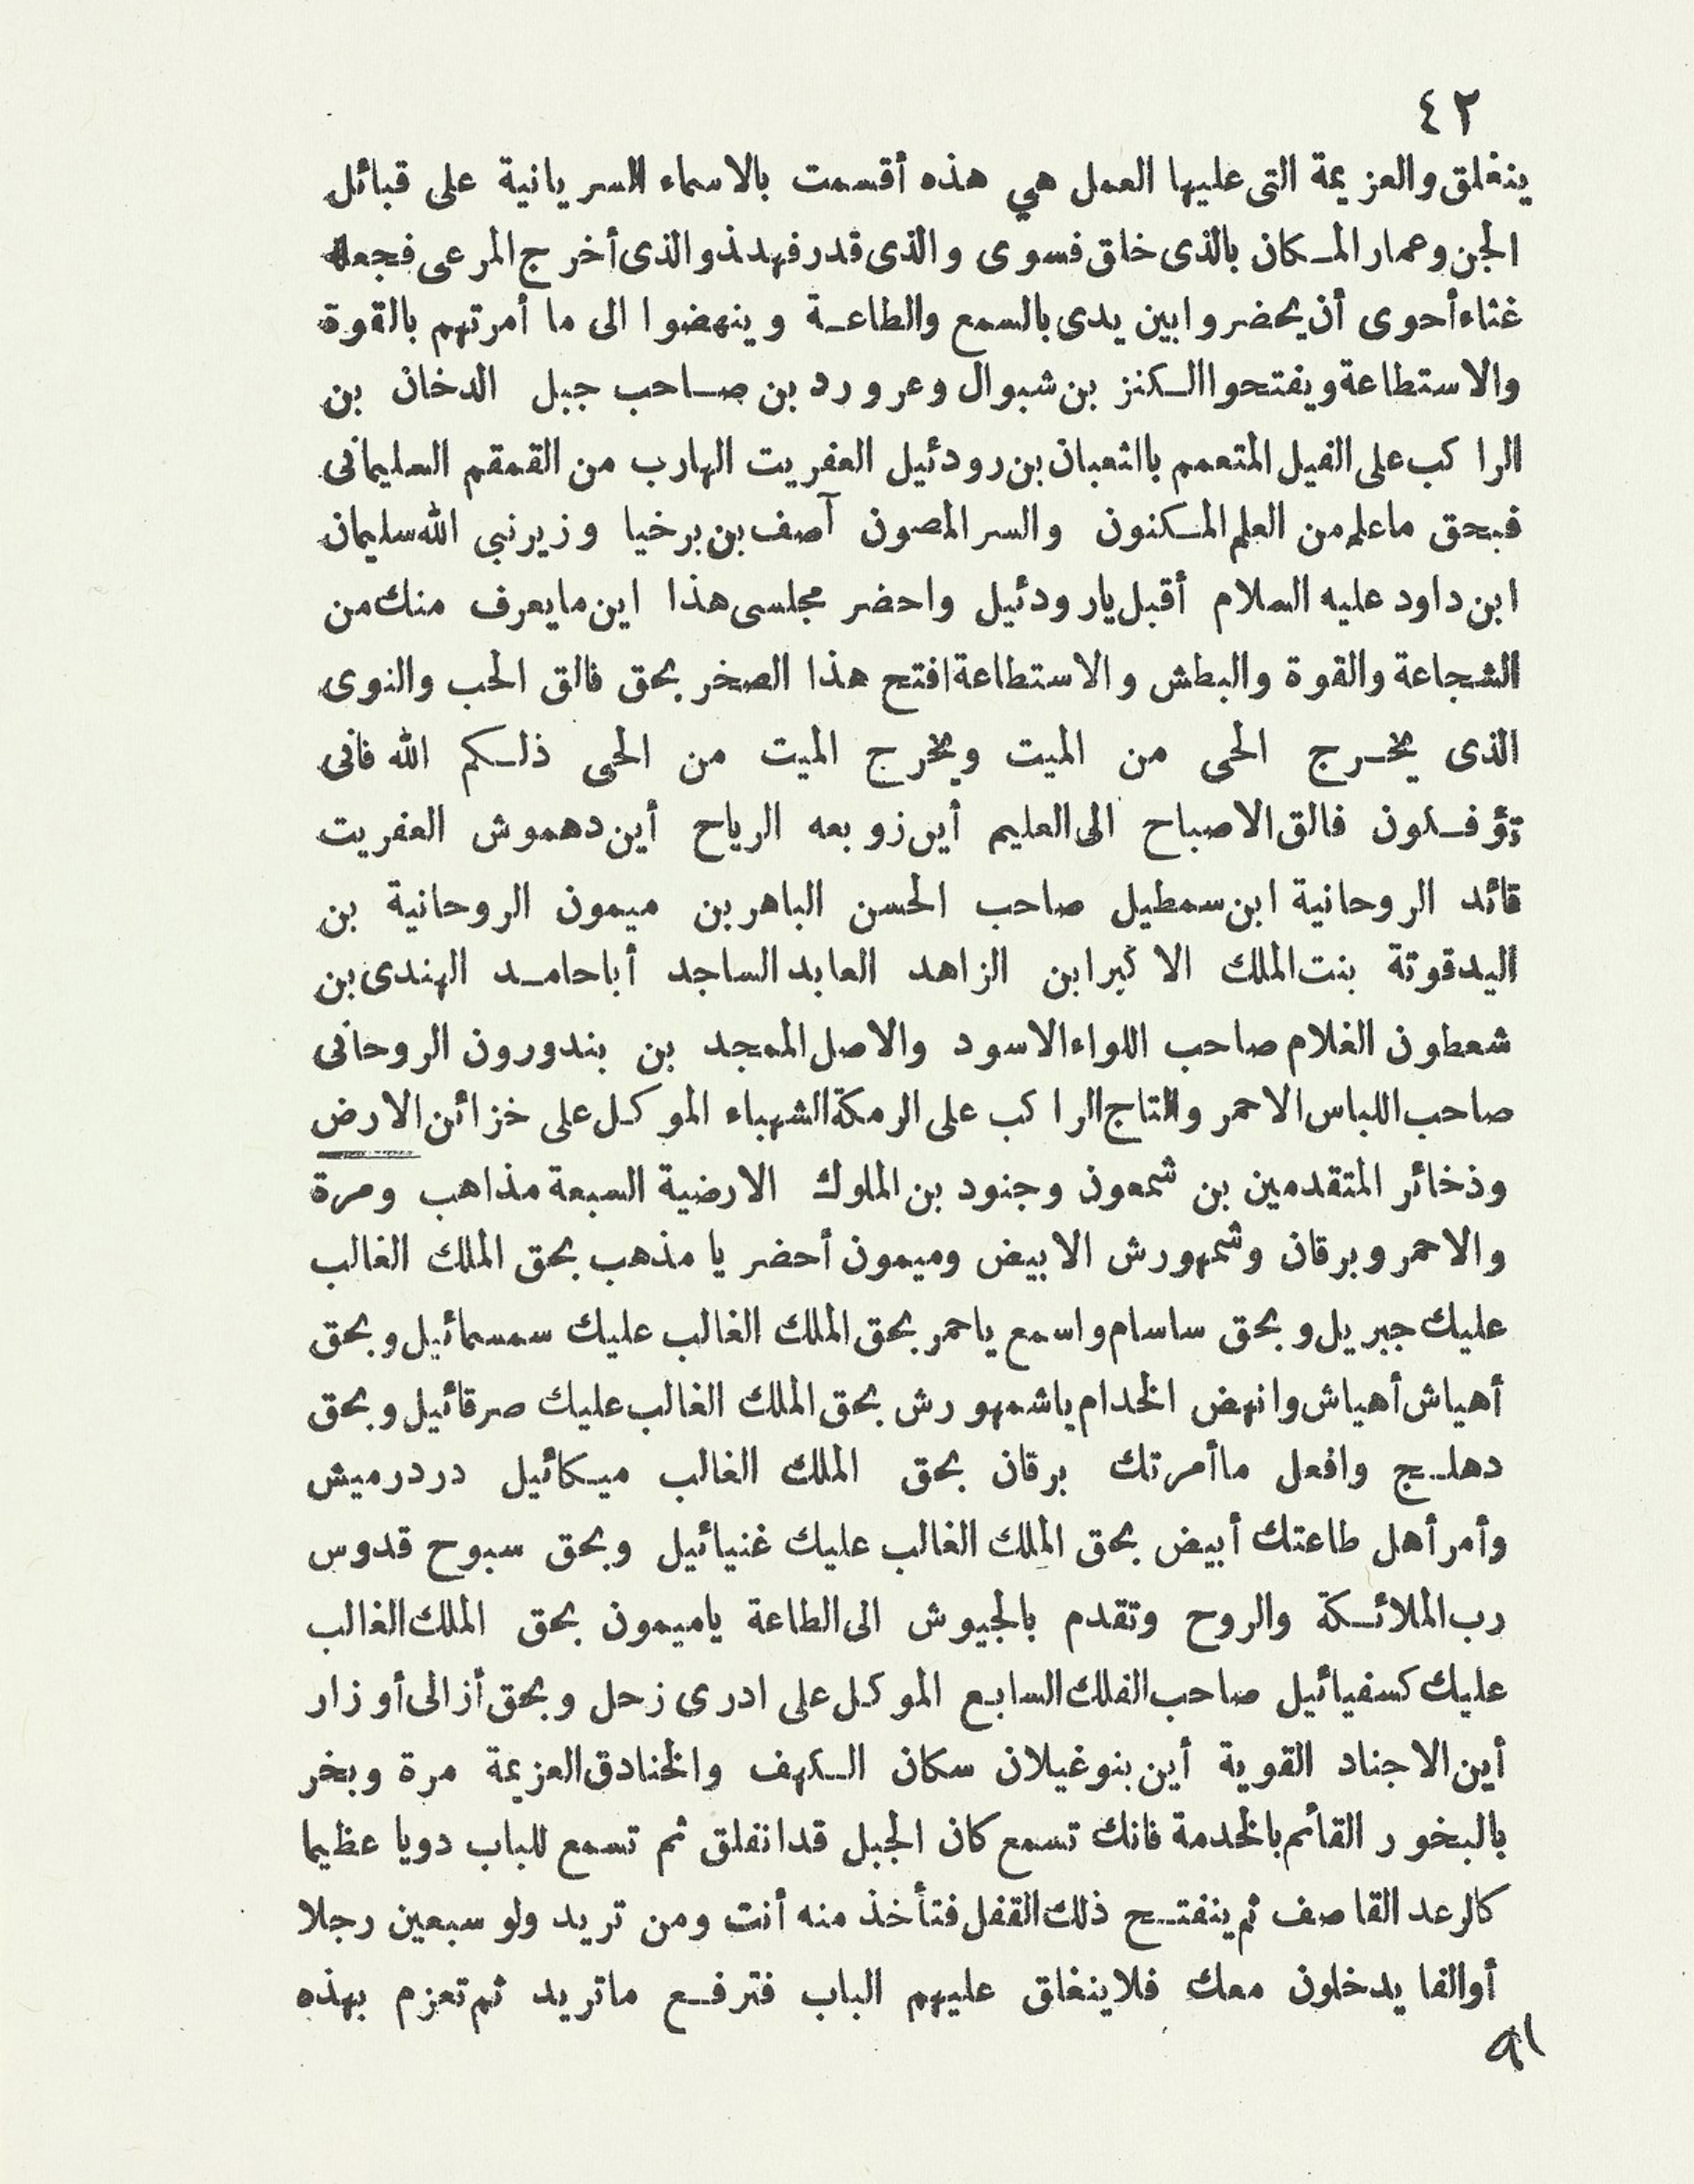 ٤٢
ينغلق والعزيمة التى عليها العمل هي هذه أقسمت بالاسماء السريانية على قبائل
الجن وعمار المكان بالذى خلق فسوى والذى قدر فهدى والذى أخرج المرعى فجعله
غثاء أحوى أن يحضروا بين يدى بالسمع والطاعة وينهضوا الى ما أمرتهم بالقوة
والاستطاعة ويفتحوا الكنز بن شبوال وعرورد بن صاحب جبل الدخان بن
الراكب على الفيل المتعمم بالثعبان بن رودئيل العفريت الهارب من القمقم السليمانى
فبحق ماعلم من العلم المكنون والسر المصون آصف بن برخيا وزير نبي الله سليمان
ابن داود عليه السلام أقبل يارودئيل واحضر مجلسى هذا اين مايعرف منك من
الشجاعة والقوة والبطش والاستطاعة افتح هذا الصخر بحق فالق الحب والنوى
الذى يخرج الحى من الميت ويخرج الميت من الحى ذلكم الله فانى
تؤفكون فالق الاصباح الى العليم أين زوبعه الرياح أين دهموش العفريت
قائد الروحانية ابن سمطيل صاحب الحسن الباهر بن ميمون الروحانية بن
اليدقوتة بنت الملك الاكبر ابن الزاهد العابد الساجد أباحامد الهندى بن
شعطون الغلام صاحب اللواء الاسود والاصل الممجد بن بندورون الروحانى
صاحب اللباس الاحمر والتاج الراكب على الرمكة الشهباء الموكل على خزائن الارض
وذخائر المتقدمين بن شمعون وجنود بن الملوك الارضية السبعة مذاهب ومرة
والاحمر وبرقان وشمهورش الابيض وميمون أحضر يا مذهب بحق الملك الغالب
عليك جبريل وبحق ساسام واسمع ياحمر بحق الملك الغالب عليك سمسمائيل وبحق
أهياش أهياش وانهض الخدام ياشمهورش بحق الملك الغالب عليك صرقائيل وبحق
دهلج وافعل ماأمرتك برقان بحق الملك الغالب ميكائيل دردرميش
وأمر أهل طاعتك أبيض بحق الملك الغالب عليك غنيائيل وبحق سبوح قدوس
رب الملائكة والروح وتقدم بالجيوش الى الطاعة ياميمون بحق الملك الغالب
عليك كسفيائيل صاحب الفلك السابع الموكل على ادرى زحل وبحق أزالى أوزار
أين الاجناد القوية أين بنوغيلان سكان الكهف والخنادق العزيمة مرة وبخر
بالبخور القائم بالخدمة فانك تسمع كان الجبل قد انفلق ثم تسمع للباب دويا عظيما
كالرعد القاصف ثم ينفتح ذلك القفل فتأخذ منه أنت ومن تريد ولو سبعين رجلا
أوالفا يدخلون معك فلاينغلق عليهم الباب فترفع ماتريد ثم تعزم بهذه